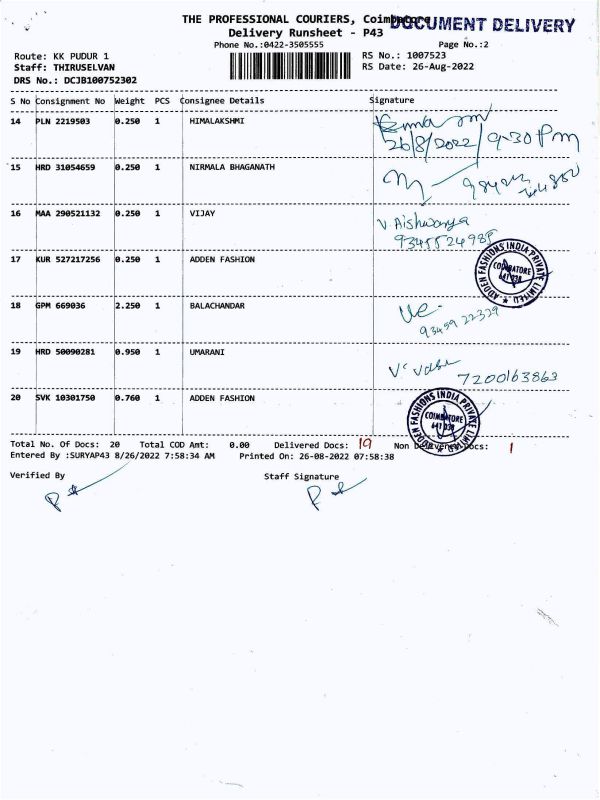 THE PROFESSIONAL COURIERS, Coimbatore
DOCUMENT DELIVERY
Delivery Runsheet - P43
Phone No.:0422-3505555
Page No.:2
Route: KK PUDUR 1
RS No.: 1007523
Staff: THIRUSELVAN
RS Date: 26-Aug-2022
DRS No.: DCJB100752302
S No Consignment No Weight PCS Consignee Details Signature
14 PLN 2219503 0.250 1 HIMALAKSHMI
26/8/2022 / 9-30 Pm
15 HRD 31054659 0.250 1 NIRMALA BHAGANATH
16 MAA 290521132 0.250 1 VIJAY V Aishwarya
17 KUR 527217256 0.250 1 ADDEN FASHION
ADDEN FASHIONS INDIA PRIVATE LIMITED
COIMBATORE
641 038
18 GPM 669036 2.250 1 BALACHANDAR
93499 22339
19 HRD 50090281 0.950 1 UMARANI
7200163863
20 SVK 10301750 0.760 1 ADDEN FASHION
ADDEN FASHIONS INDIA PRIVATE LIMITED
COIMBATORE
641 038
Total No. Of Docs: 20 Total COD Amt: 0.00 Delivered Docs: 19 Non Delivered Docs: 1
Entered By :SURYAP43 8/26/2022 7:58:34 AM Printed On: 26-08-2022 07:58:38
Verified By Staff Signature